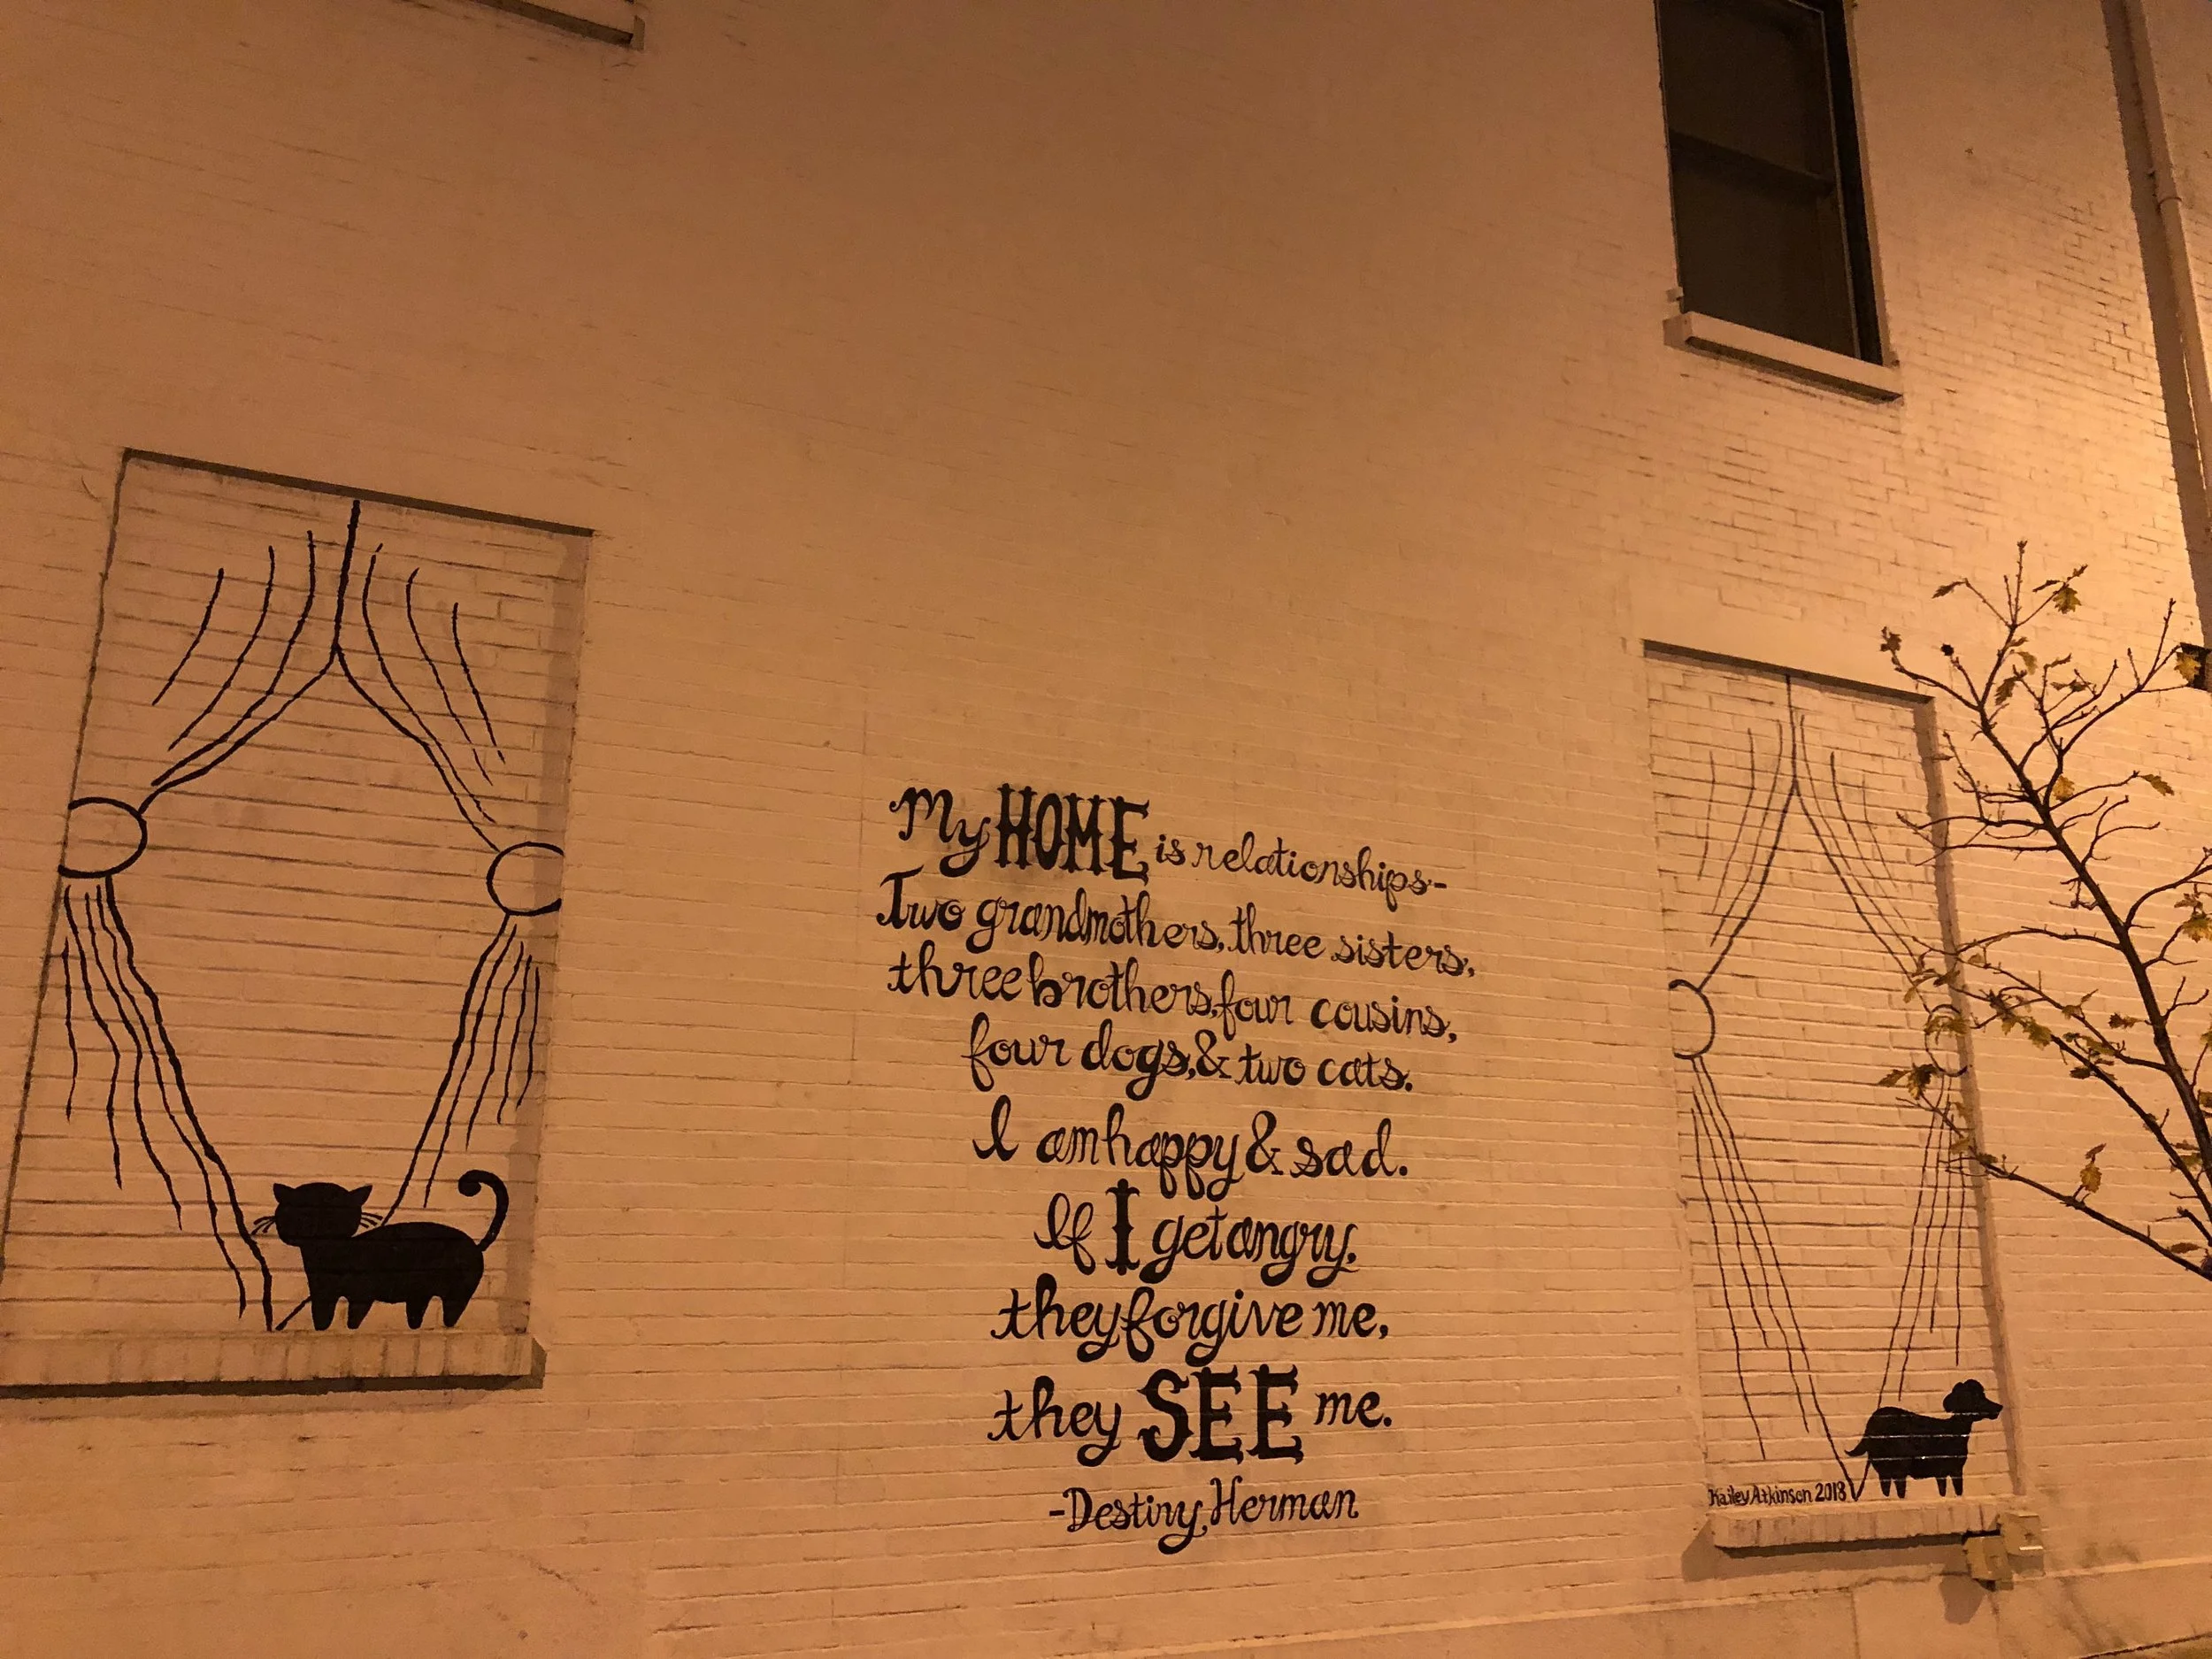 My HOME is relationships-
Two grandmothers, three sisters,
three brothers, four cousins,
four dogs, & two cats.
I am happy & sad.
If I get angry,
they forgive me,
they SEE me.
-Destiny Herman
Kailey Atkinson 2018